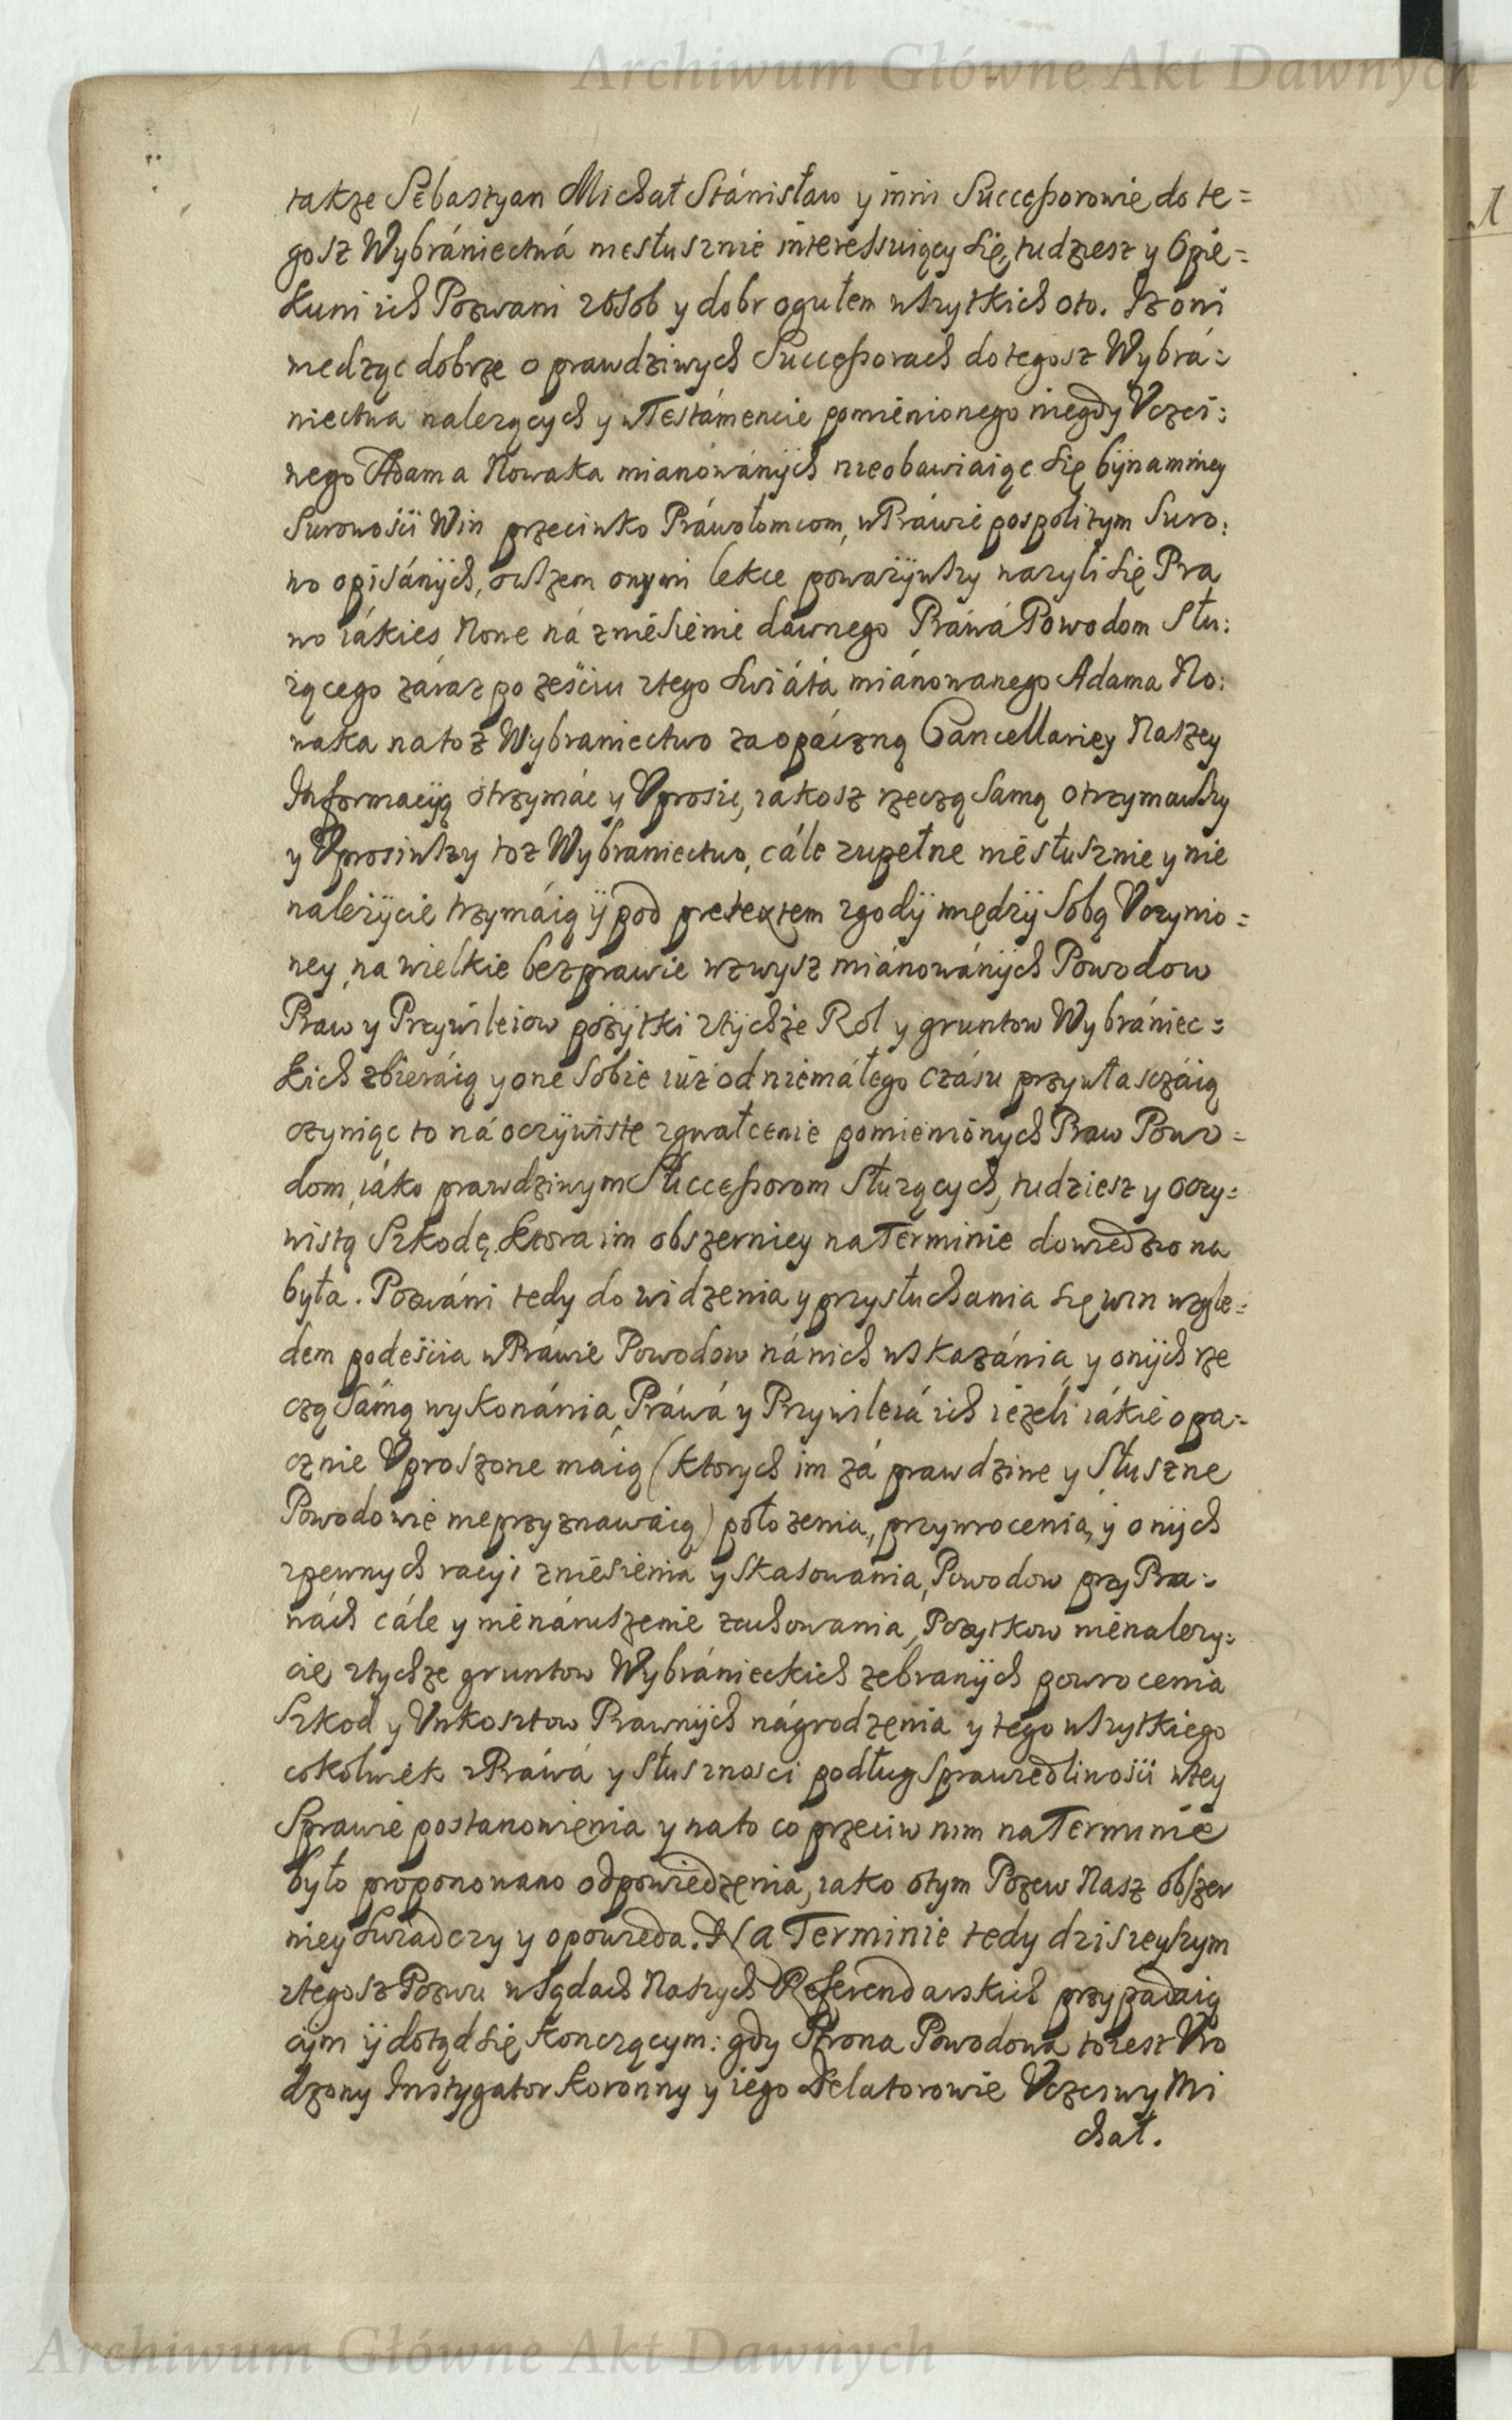 Archiwum Główne Akt Dawnych
takze Sebastyan Michał Stánisław y inni Successorowie do te=
gosz Wybrániectwá niesłusznie interessuiący się, tudziesz y Opie=
kuni ich Pozwani z osob y dobr ogułem wszytkich oto. Iz oni
wiedząc dobrze o prawdziwych Successorach do tegosz Wybrá=
niectwa nalezących y w Testámencie pomienionego niegdy Vczci:
wego Adama Nowaka mianowánÿch nieobawiaiąc się bÿnamniey
Surowości Win przeciwko Práwołomcom, w Práwie pospolitym Suro:
wo opisánÿch, owszem onymi lekce powazÿwszy wazyli się Pra
wo iákies Nowe ná zniesienie dawnego Práwá Powodom Słu:
zącego záraz po ześciu z tego Swiátá miánowanego Adama No:
waka na toz Wybraniectwo za opáczną Cancellariey Naszey
Informacÿą otrzymác y Vprosic, iakosz rzeczą samą otrzymawszy
y Vprosiwszy toz Wybraniectwo, cále zupełne niesłusznie y nie
nalezÿcie trzymáią ÿ pod pretextem zgodÿ między Sobą Vczynio=
ney, na wielkie bezprawie wzwysz miánowánÿch Powodow
Praw y Przywileiow pozÿtki z tÿchze Rol y gruntow Wybrániec=
kich zbieráią y one sobie iuz od niemáłego czásu przywłasczáią
czyniąc to ná oczÿwiste zgwałcenie pomienionych Praw Powo=
dom, iáko prawdziwym Successorom Słuzących, tudziesz y oczy=
wistą Szkodę, ktora im obszerniey na Terminie dowiedziona
była. Pozwáni tedy do widzenia y przysłuchania się win wzglę=
dem podeścia w Práwie Powodow ná nich wskazánia, y onÿch rze
czą sámą wykonánia, Práwá y Przywileiá ich iezeli iákie opa=
cznie Vproszone máią (ktorych im zá prawdziwe y słuszne
Powodowie nieprzyznawaią) położenia, przywrocenia, y onÿch
z pewnych racyi zniesienia y skasowania, Powodow przy Pra=
wách cále y nienáruszenie zachowania, Pozytkow nienalezy=
cie z tychze gruntow Wybránieckich zebranÿch powrocenia
Szkod y Vnkosztow Prawnÿch nágrodzenia y tego wszytkiego
cokolwiek z Práwá y słusznosci podług sprawiedliwości w tey
Sprawie postanowienia y na to co przeciw nim na Terminie
było proponowano odpowiedzenia, iako o tym Pozew Nasz obszer
niey swiadczy y opowieda. Na Terminie tedy dzisieyszym
z tegosz Pozwu w Sądach Naszych Referendarskich przypadaią
cÿm ÿ dotąd się konczącym: gdy Strona Powodowa to iest Vro
dzony Instygator Koronny y iego Delatorowie Vczciwy Mi
chał.
Archiwum Główne Akt Dawnych